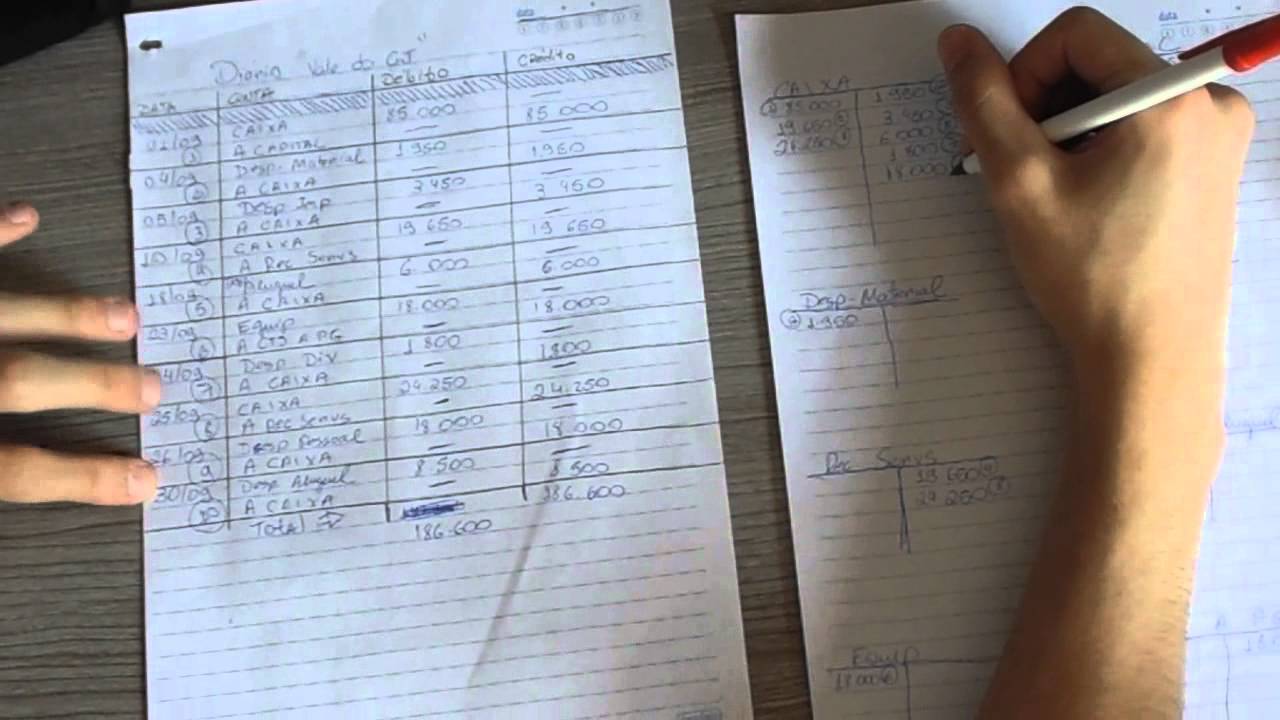 Diário "Vale do GJ"
DATA CONTA Débito Crédito
01/09 CAIXA 85.000 —
① A CAPITAL — 85.000
04/09 Desp. Material 1.950 —
② A CAIXA — 1.950
05/09 Desp Imp 3.450 —
③ A CAIXA — 3.450
10/09 CAIXA 19.650 —
④ A Rec Servs — 19.650
18/09 Aluguel 6.000 —
⑤ A CAIXA — 6.000
23/09 Equip 18.000 —
⑥ A PG — 18.000
24/09 Desp. Div 1800 —
⑦ A CAIXA — 1800
25/09 CAIXA 24.250 —
⑧ A Rec Servs — 24.250
26/09 Desp Pessoal 18.000 —
⑨ A CAIXA — 18.000
30/09 Desp Aluguel 8.500 —
⑩ A CAIXA — 8.500
Total ⇒ 186.600 186.600
CAIXA
85.000 1.950
19.650 3.450
24.250 6.000
1.800
18.000
Desp. Material
1.950
Rec Servs
19.650
24.250
Equip
18.000 ⑥